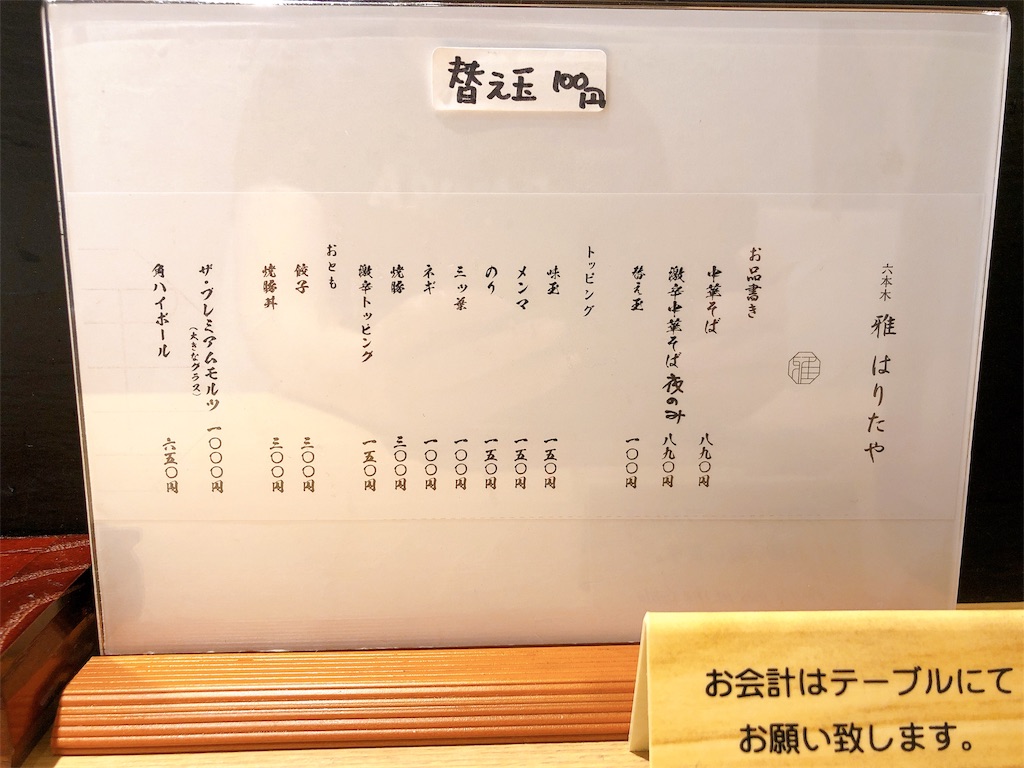 替え玉 100円
六本木 雅 はりたや
雅
お品書き
中華そば 八九〇円
激辛中華そば 夜のみ 八九〇円
替え玉 一〇〇円
トッピング
味玉 一五〇円
メンマ 一五〇円
のり 一五〇円
三ッ葉 一〇〇円
ネギ 一〇〇円
焼豚 三〇〇円
激辛トッピング 一五〇円
おとも
餃子 三〇〇円
焼豚丼 三〇〇円
ザ・プレミアムモルツ 一〇〇〇円
(大きなグラス)
角ハイボール 六五〇円
お会計はテーブルにて
お願い致します。